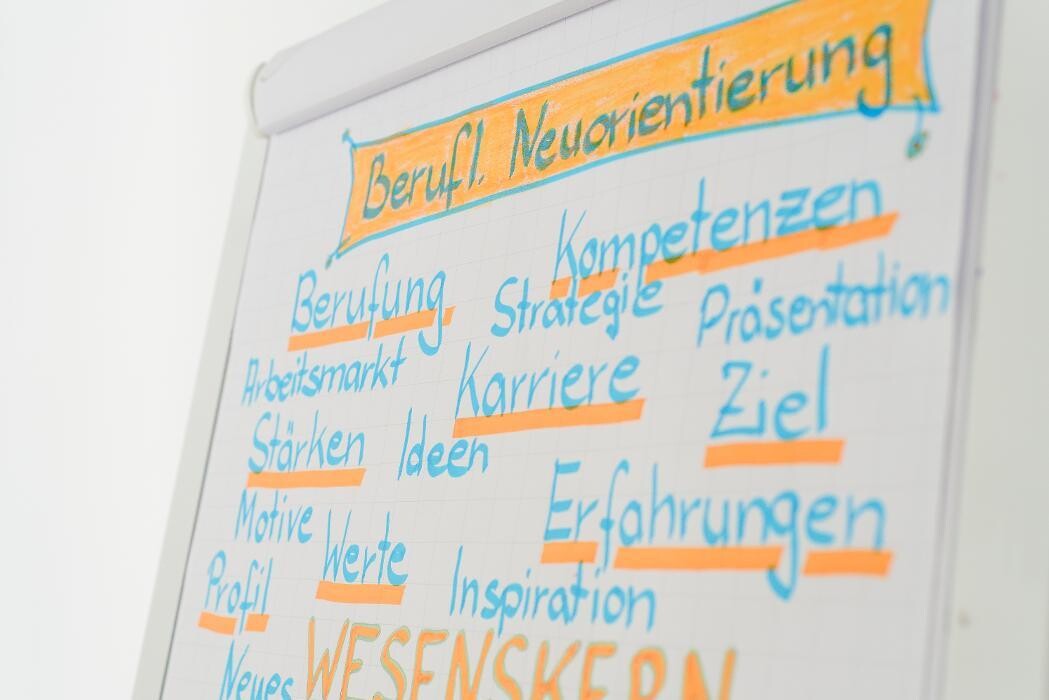 Berufl. Neuorientierung
Berufung Strategie Kompetenzen Präsentation
Arbeitsmarkt Karriere Ziel
Stärken Ideen
Motive Werte Erfahrungen
Profil Inspiration
Neues WESENSKERN